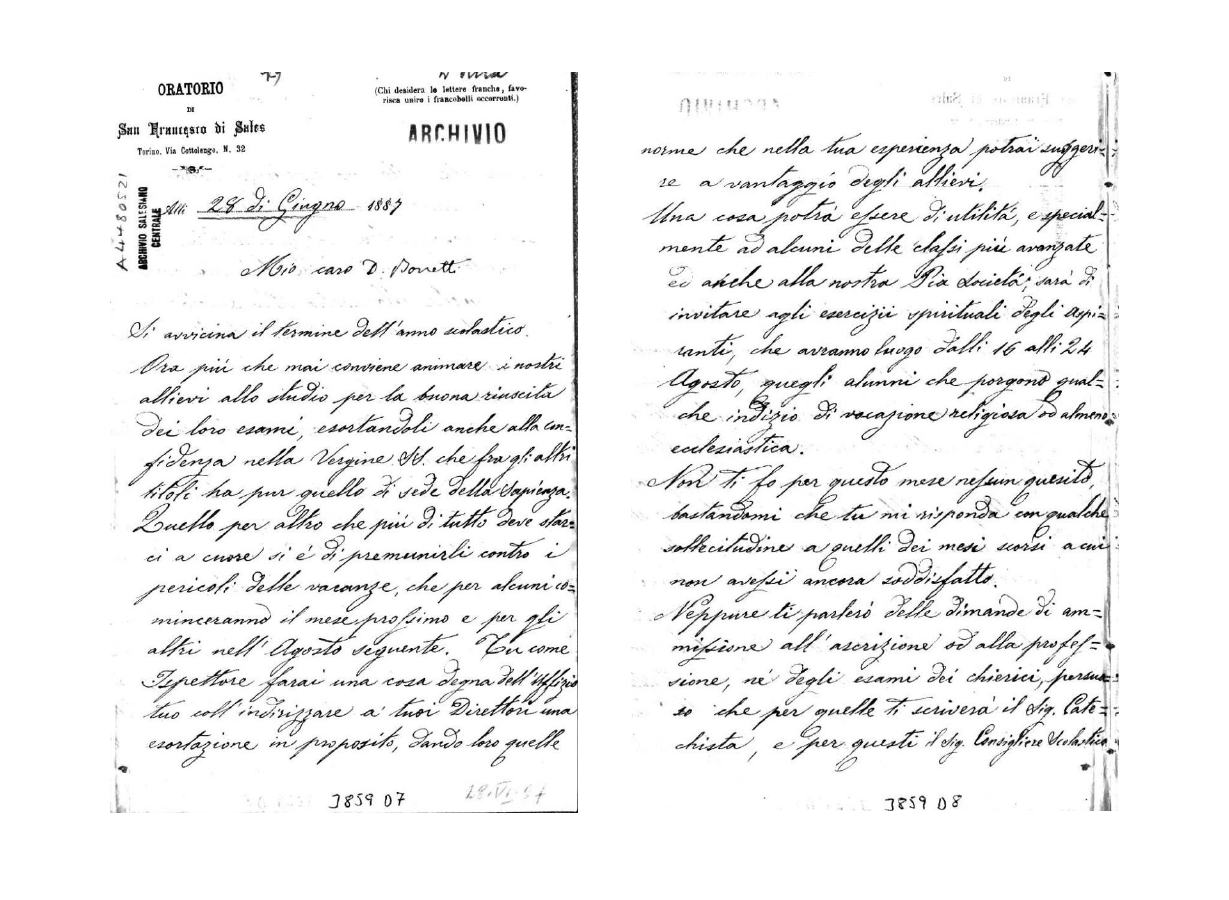 ORATORIO
DI
San Francesco di Sales
Torino, Via Cottolengo, N. 32
(Chi desidera le lettere franche, favo-
risca unire i francobolli occorrenti.)
ARCHIVIO
A4480521
ARCHIVIO SALESIANO
CENTRALE
Alli 28 di Giugno 1887
Mio caro D. Bonett
Si avvicina il termine dell'anno scolastico.
Ora più che mai conviene animare i nostri
allievi allo studio per la buona riuscita
dei loro esami, esortandoli anche alla con=
fidenza nella Vergine SS. che fra gli altri
titoli ha pur quello di sede della Sapienza.
Quello per altro che più di tutto deve star=
ci a cuore si è di premunirli contro i
pericoli delle vacanze, che per alcuni co=
minceranno il mese prossimo e per gli
altri nell'Agosto seguente. Tu come
Ispettore farai una cosa degna dell'Uffizio
tuo coll'indirizzare a' tuoi Direttori una
esortazione in proposito, dando loro quelle
3859 D7
28.VI.87
norme che nella tua esperienza potrai suggeri=
re a vantaggio degli allievi.
Una cosa potrà essere di utilità, e special=
mente ad alcuni delle classi più avanzate
ed anche alla nostra Pia Società; sarà di
invitare agli esercizii spirituali degli Aspi=
ranti, che avranno luogo dalli 16 alli 24
Agosto, quegli alunni che porgono qual=
che indizio di vocazione religiosa od almeno
ecclesiastica.
Non ti fo per questo mese nessun quesito,
bastandomi che tu mi risponda con qualche
sollecitudine a quelli dei mesi scorsi a cui
non avessi ancora soddisfatto.
Neppure ti parlerò delle dimande di am=
missione all'ascrizione od alla profes=
sione, nè degli esami dei chierici, persua=
so che per quelle ti scriverà il Sig. Cate=
chista, e per questi il Sig. Consigliere Scolastico
3859 D8